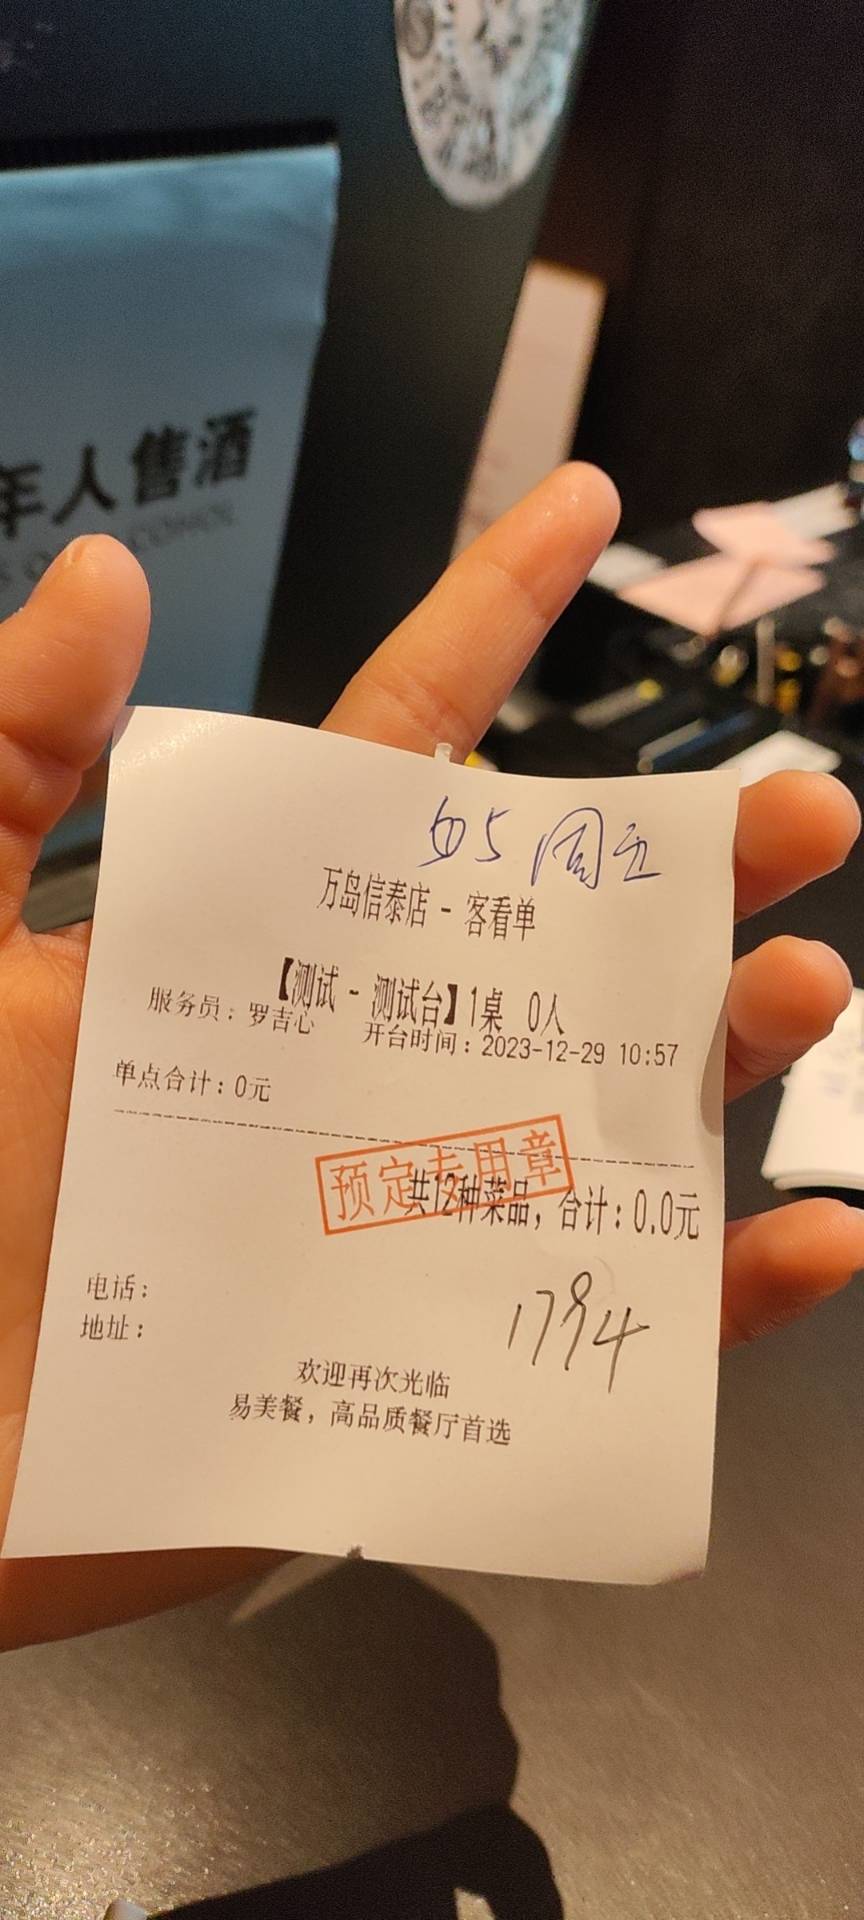 年人售酒
万岛信泰店 - 客看单
【测试 - 测试台】1桌 0人
服务员：罗吉心 开台时间：2023-12-29 10:57
单点合计：0元
预定专用章
共12种菜品，合计：0.0元
电话：
1794
地址：
欢迎再次光临
易美餐，高品质餐厅首选